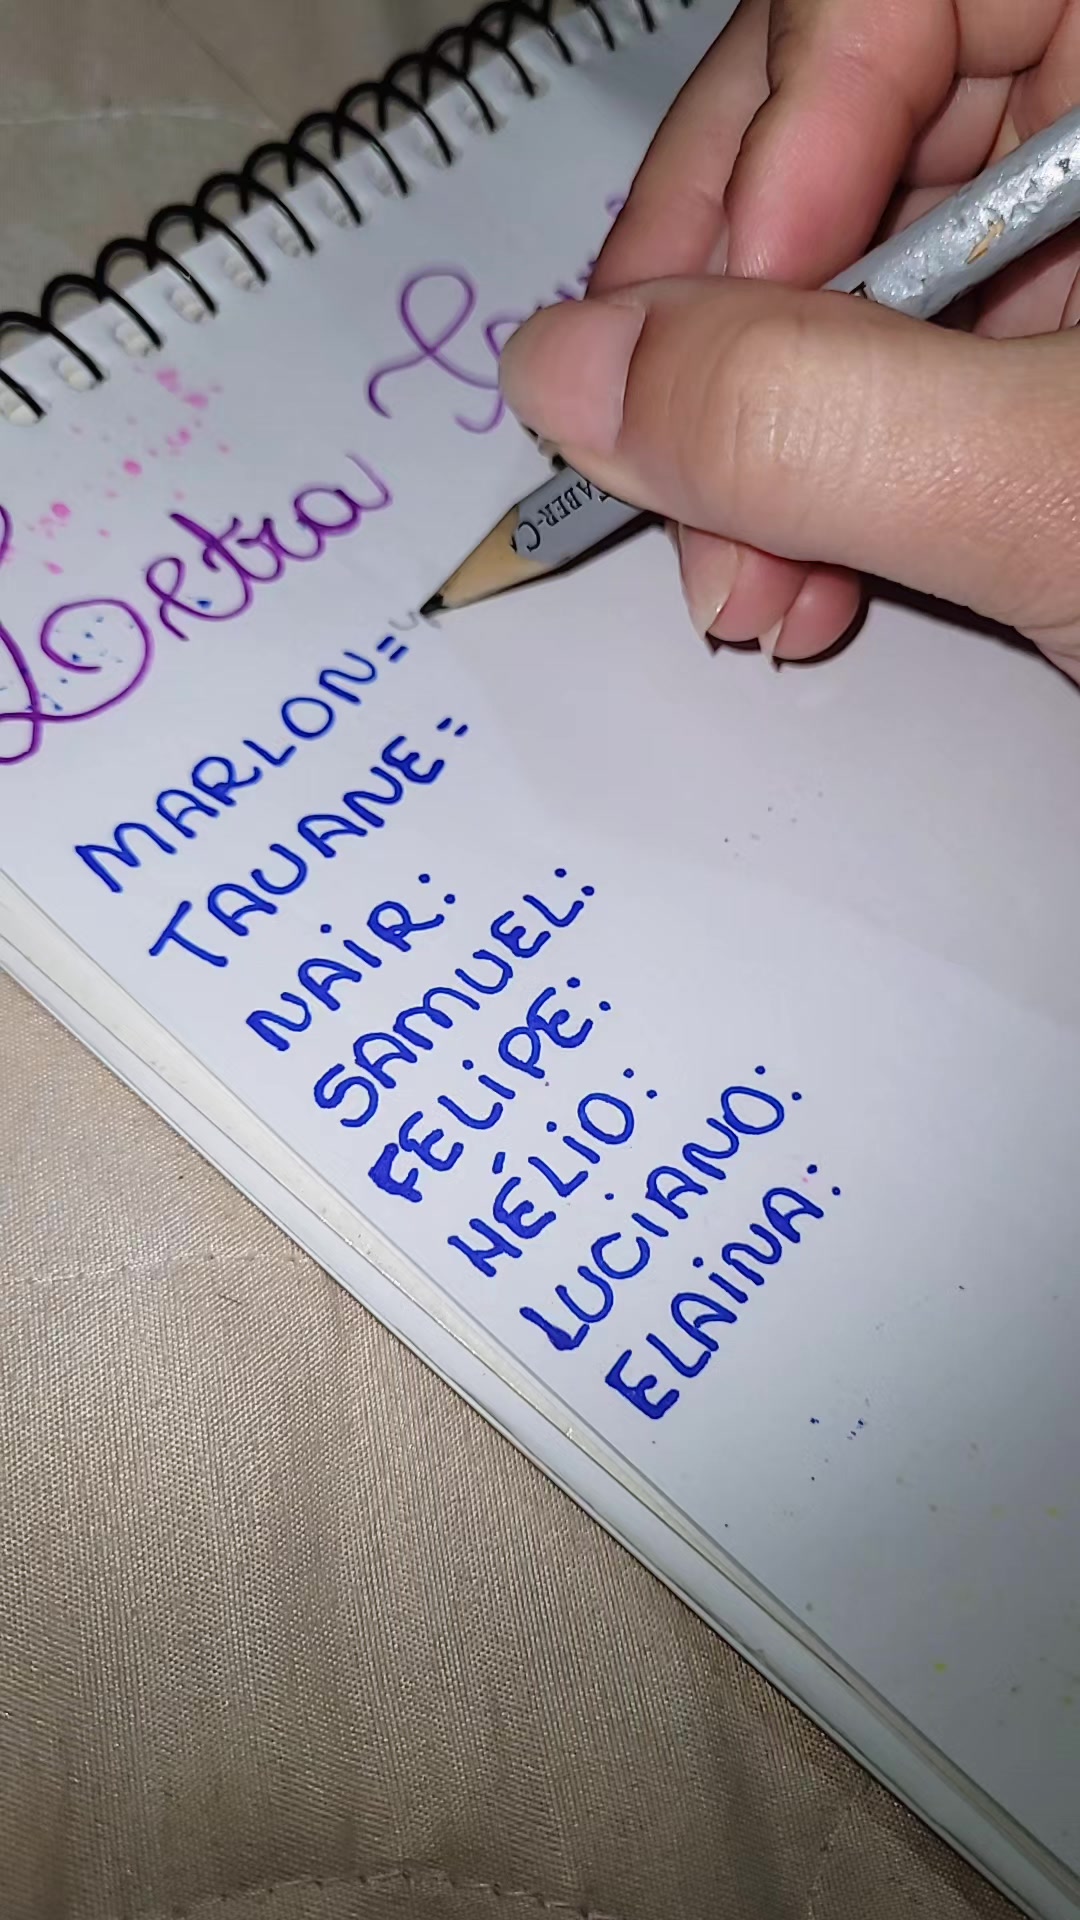 Letra
MARLON=
TAUANE=
NAIR:
SAMUEL:
FELIPE:
HÉLIO:
LUCIANO:
ELAINA:
FABER-C